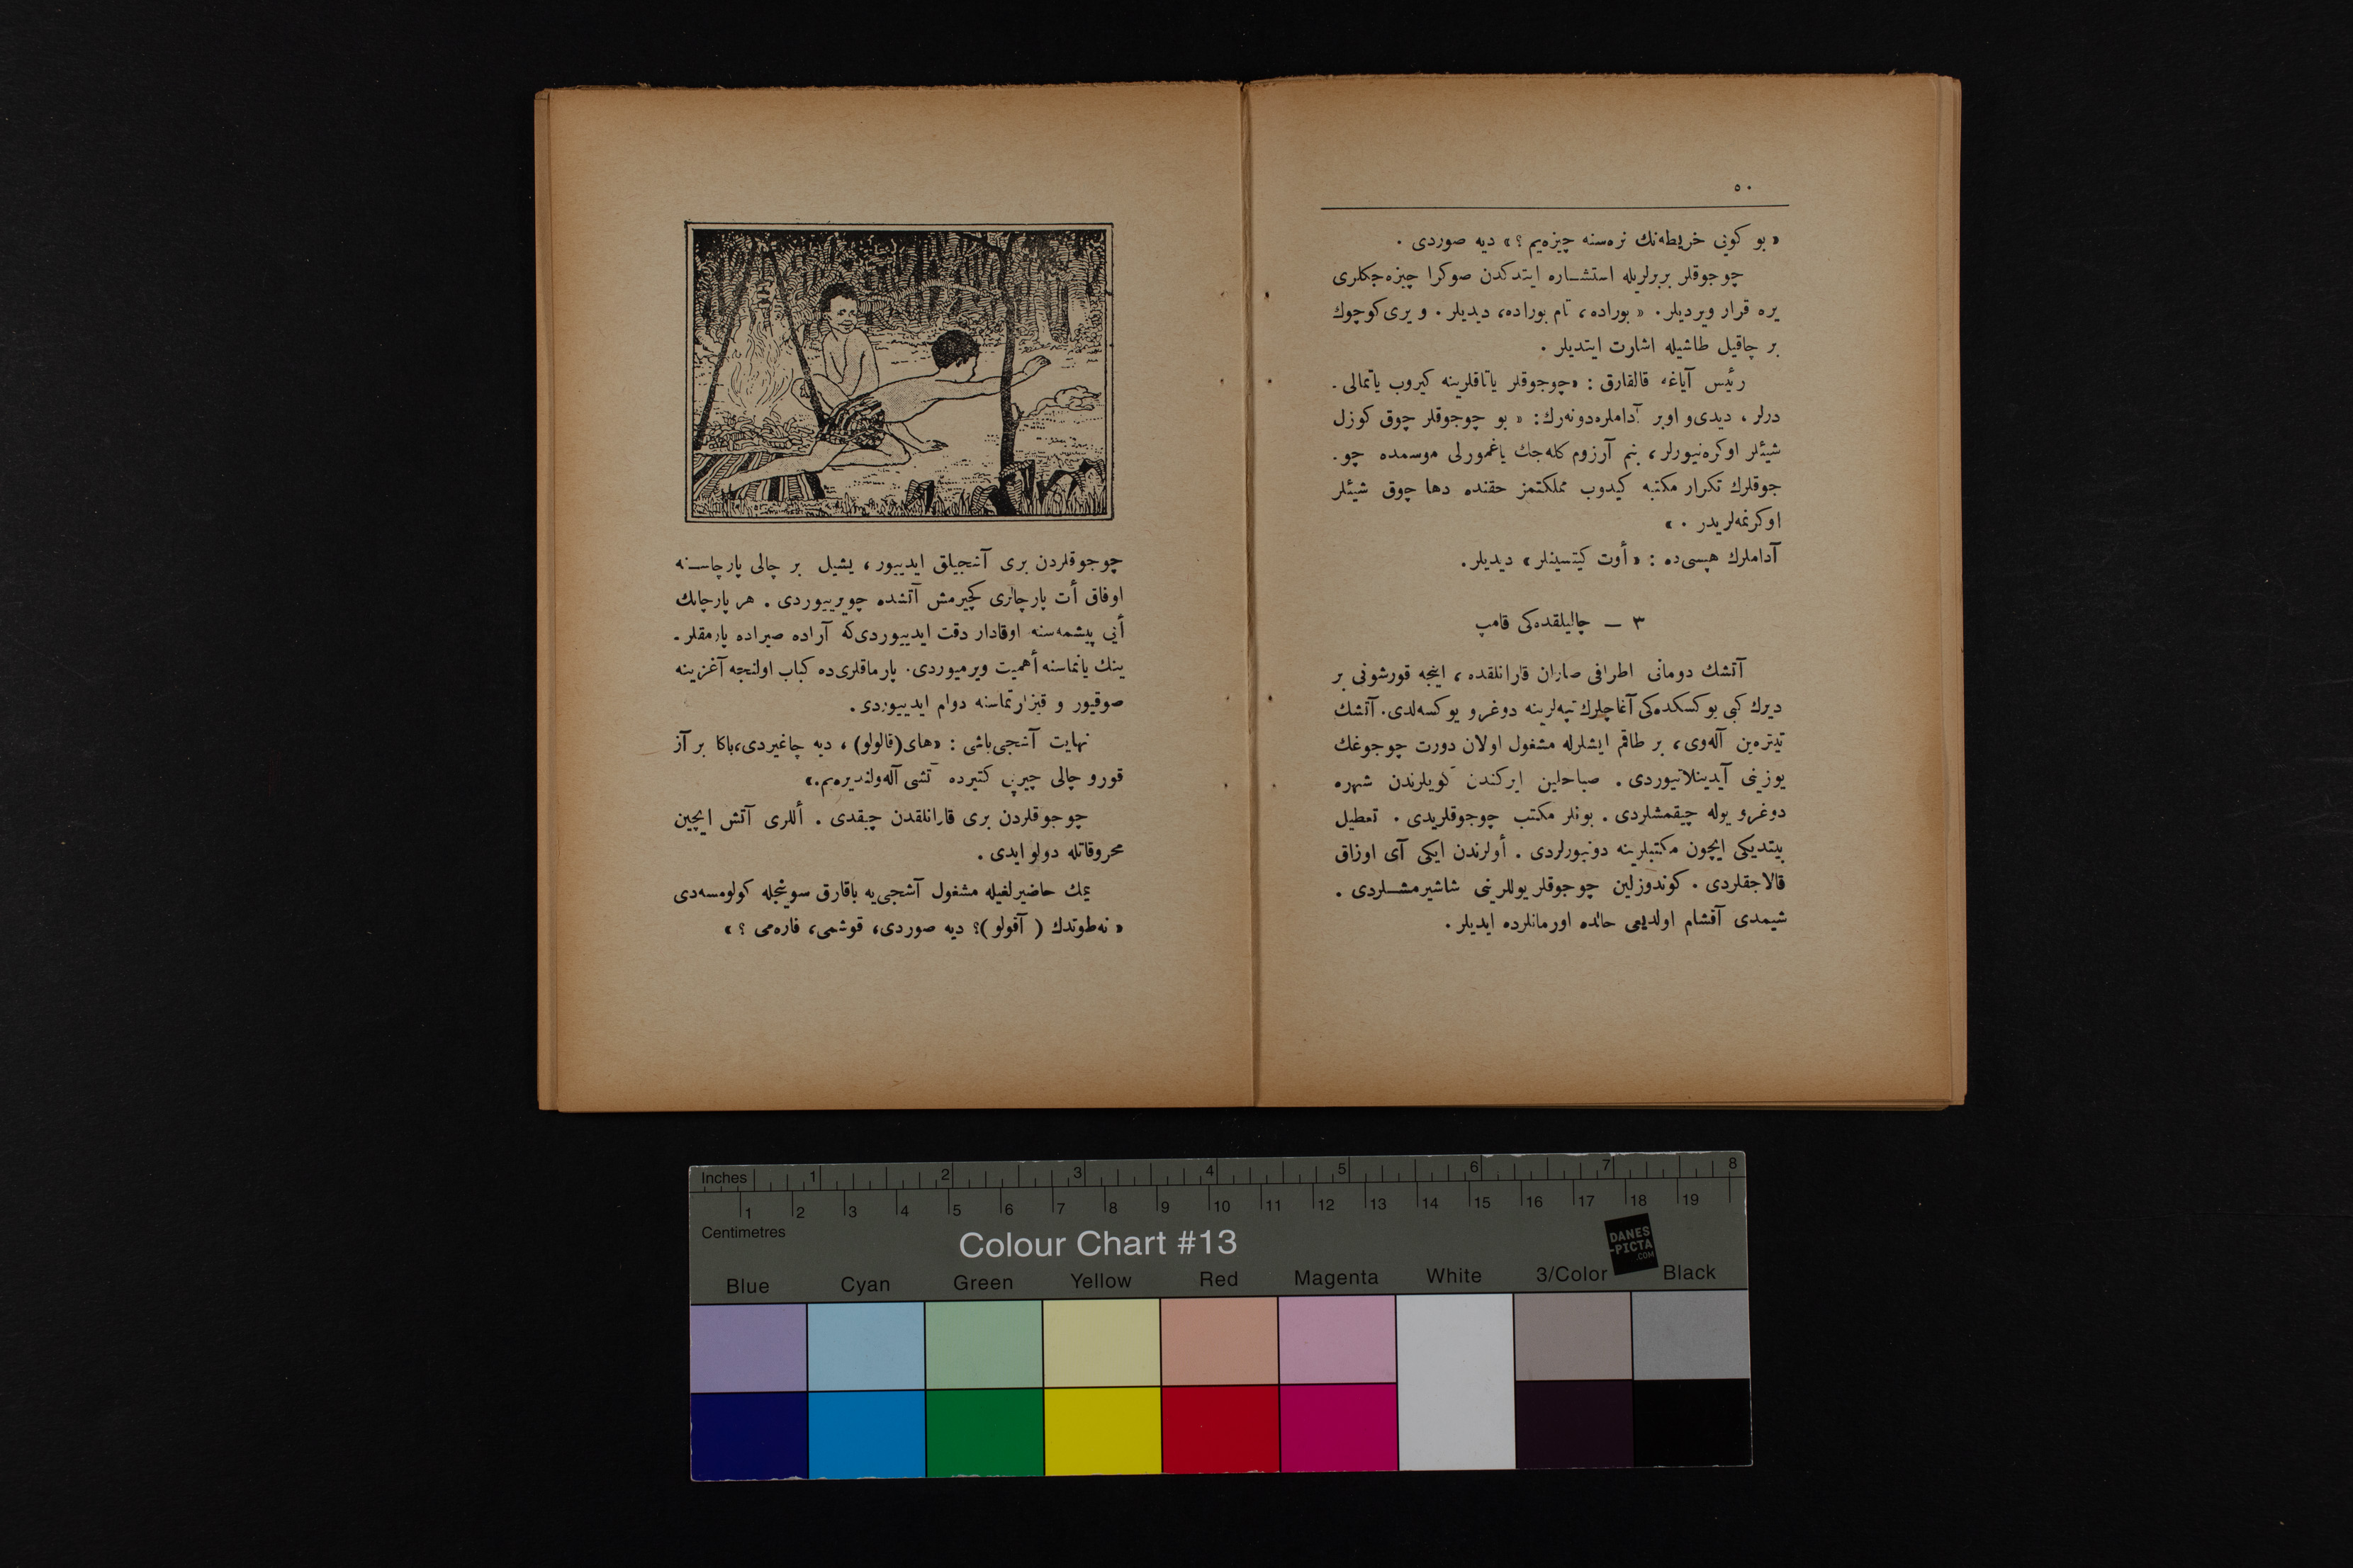 ٥٠
« بو كویی خریطه‌نك نره‌سنه چیزه‌یم ؟ » دیه صوردی .
چوجوقلر بربرلریله استشاره ایتدكدن صوكرا چیزه‌جكلری
یره قرار ویردیلر . « بوراده ، تام بوراده ، دیدیلر . و یری كوچوك
بر چاقیل طاشیله اشارت ایتدیلر .
رئیس آیاغه قالقارق : « چوجوقلر یاتاقلرینه كیروب یاتمالی -
درلر ، دیدی و اوبر آداملره دونه‌رك : « بو چوجوقلر چوق كوزل
شیئلر اوكره‌نیورلر ، بنم آرزوم كله‌جك یاغمورلی موسمده چو -
جوقلرك تكرار مكتبه كیدوب مملكتمز حقنده دها چوق شیئلر
اوكرنمه‌لریدر . »
آداملرك هپسی ده : « أوت كیتسینلر » دیدیلر .
٣ — چالیلقده‌كی قامپ
آتشك دومانی اطرافی صاران قارانلقده ، اینجه قورشونی بر
دیرك كبی یوكسكده‌كی آغاچلرك تپه‌لرینه دوغرو یوكسه‌لدی . آتشك
تیتره‌ین آله‌وی ، بر طاقم ایشلرله مشغول اولان دورت چوجوغك
یوزینی آیدینلاتیوردی . صباحلین ایركندن كویلرندن شهره
دوغرو یوله چیقمشلردی . بونلر مكتب چوجوقلریدی . تعطیل
بیتدیكی ایچون مكتبلرینه دونیورلردی . أولرندن ایكی آی اوزاق
قالاجقلردی . كوندوزلین چوجوقلر یوللرینی شاشیرمشلردی .
شیمدی آقشام اولدیغی حالده اورمانلرده ایدیلر .
چوجوقلردن بری آشجیلق ایدییور ، یشیل بر چالی پارچاسنه
اوفاق أت پارچالری كچیرمش آتشده چویرییوردی . هر پارچانك
أیی پیشمه‌سنه اوقادار دقت ایدییوردی كه آراده صیراده پارمقلر -
ینك یانماسنه أهمیت ویرمیوردی . پارماقلری ده كباب اولنجه آغزینه
صوقیور و قیزارتماسنه دوام ایدییوردی .
نهایت آشجی باشی : « های ( قالولو ) ، دیه چاغیردی ، باكا بر آز
قورو چالی چیرپی كتیرده آتشی آله‌ولندیره‌یم . »
چوجوقلردن بری قارانلقدن چیقدی . أللری آتش ایچین
محروقاتله دولو ایدی .
یمك حاضیرلغیله مشغول آشجی‌یه باقارق سوینجله كولومسه‌دی
« نه طوتدك ( آقولو ) ؟ دیه صوردی ، قوشمی ، فاره‌می ؟ »
Inches 1 2 3 4 5 6 7 8
1 2 3 4 5 6 7 8 9 10 11 12 13 14 15 16 17 18 19
Centimetres
Colour Chart #13
DANES
-PICTA
.COM
Blue Cyan Green Yellow Red Magenta White 3/Color Black